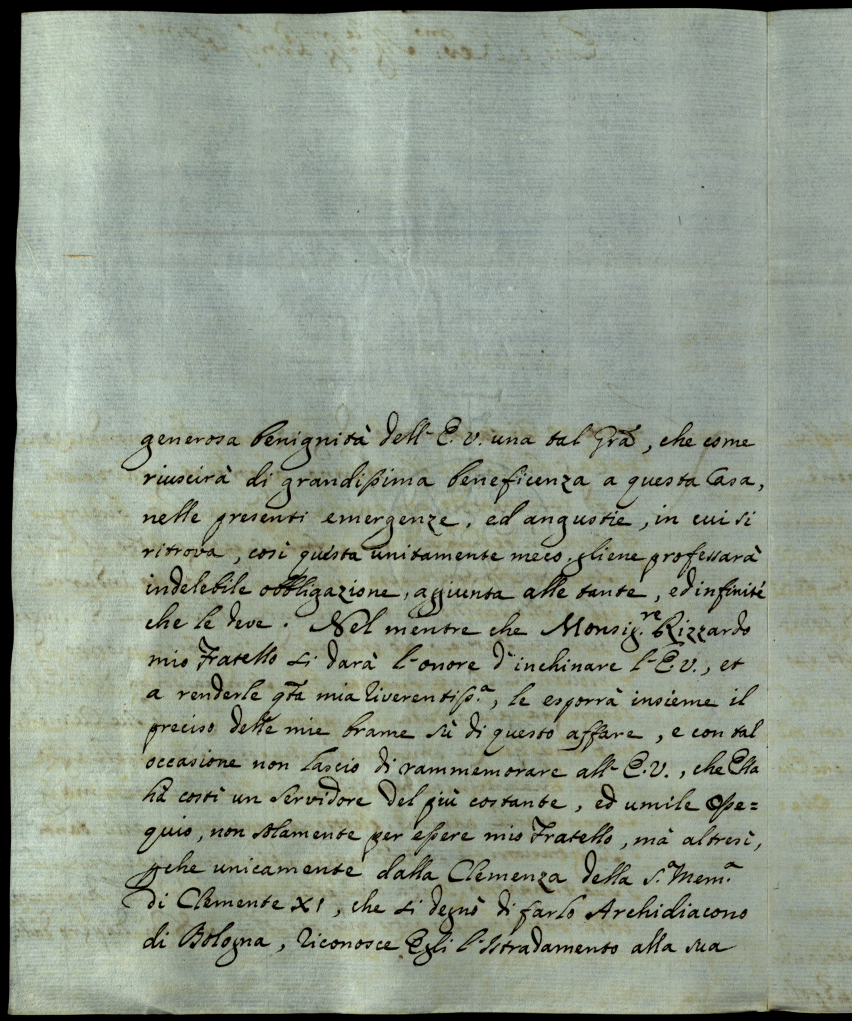 generosa benignità dell'E. V. una tal Gra͠, che come
riuscirà di grandissima beneficenza a questa Casa,
nelle presenti emergenze, ed angustie, in cui si
ritrova, così questa unitamente meco gliene professarà
indelebile obbligazione, aggiunta alle tante, ed infinite
che le deve. Nel mentre che Monsig.re Rizzardo
mio Fratello si darà l'onore d'inchinare l'E. V., et
a renderle q͠ta mia riverentiss.a, le esporrà insieme il
preciso delle mie brame sù di questo affare, e con tal
occasione non lascio di rammemorare all'E. V., che Ella
hà costì un Servidore del più costante, ed umile osse=
quio, non solamente per essere mio Fratello, mà altresì,
p͠che unicamente dalla Clemenza della S.a Mem.a
di Clemente XI, che si degnò di farlo Archidiacono
di Bologna, riconosce Egli l'Istradamento alla sua